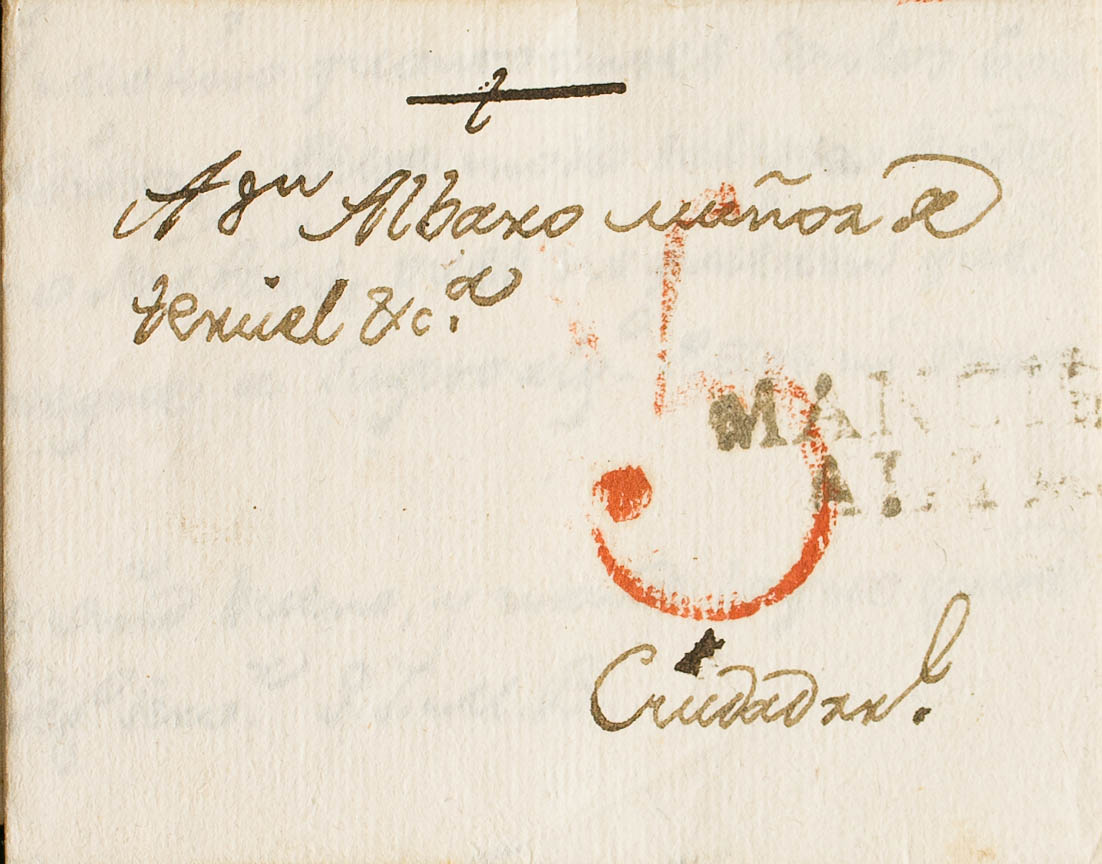 A Dn Albaro muñoz de
teruiel &c.a
5
MANCH
ALTA
Ciudadrea.l